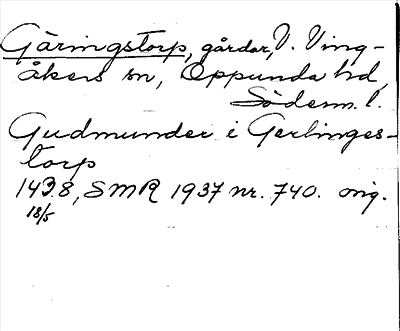 Gäringstorp, gårdar, V. Ving-
åkers sn, Oppunda hd,
Söderm. l.
Gudmunder i Gerlinges-
torp
1438, SMR 1937 nr. 740. orig.
18/5